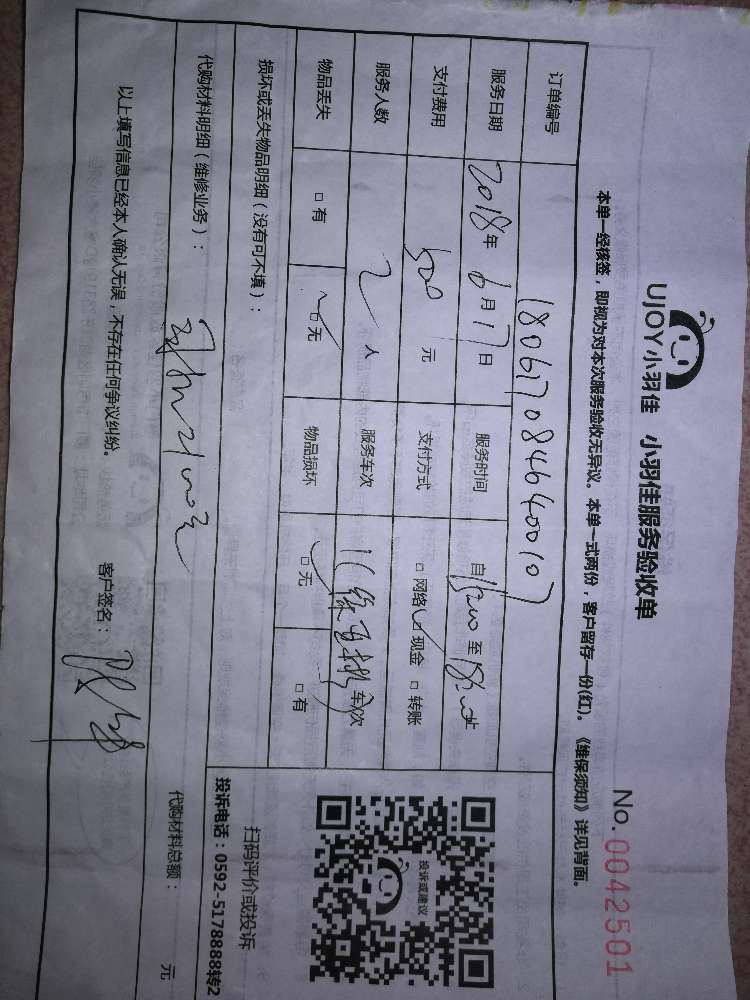 UJOY小羽佳 小羽佳服务验收单
No.0042501
本单一经核签，即视为对本次服务验收无异议。本单一式两份，客户留存一份(红)。《维保须知》详见背面。
订单编号 180617084640010
服务日期 2018年6月17日 服务时间 自 至 止
支付费用 500元 支付方式 □网络 现金 □转账
服务人数 2人 服务车次 车次
物品丢失 □有 □无 物品损坏 □无 □有
损坏或丢失物品明细（没有可不填）：
代购材料明细（维修业务）：
代购材料总额： 元
以上填写信息已经本人确认无误，不存在任何争议纠纷。 客户签名：
投诉或建议
扫码评价或投诉
投诉电话：0592-5178888转2